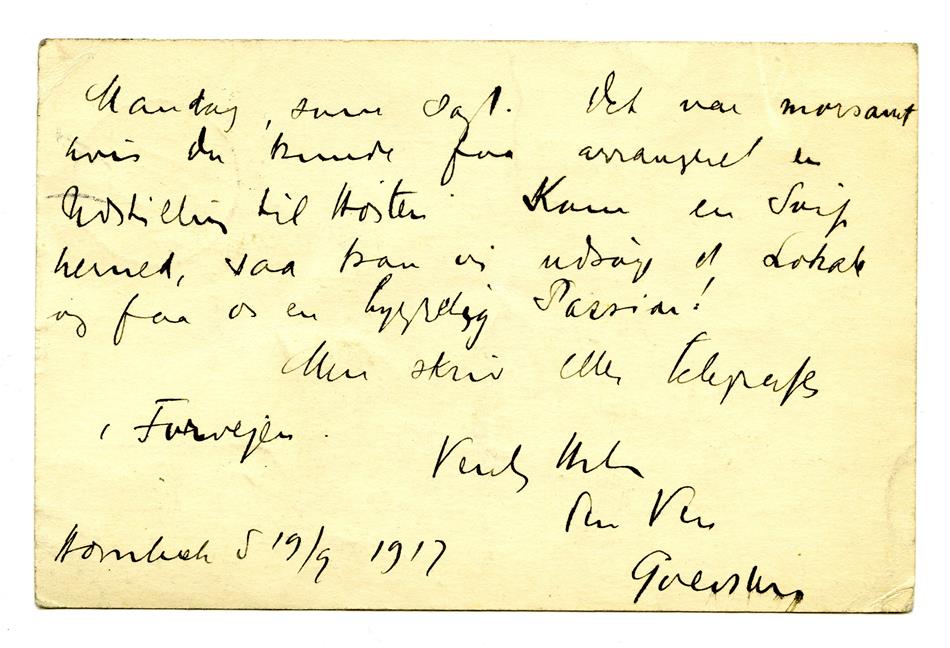 Mandag, som sagt. Det var morsomt
hvis du kunde faa arrangeret en
Udstilling til Høsten. Kom en Svip
herned, saa kan vi udsøge et Lokale
og faa os en hyggelig Passiar!
Men skriv eller telegrafer
i Forvejen.
Venlig Hilsen
Din Ven
Hornbæk d 19/9 1917